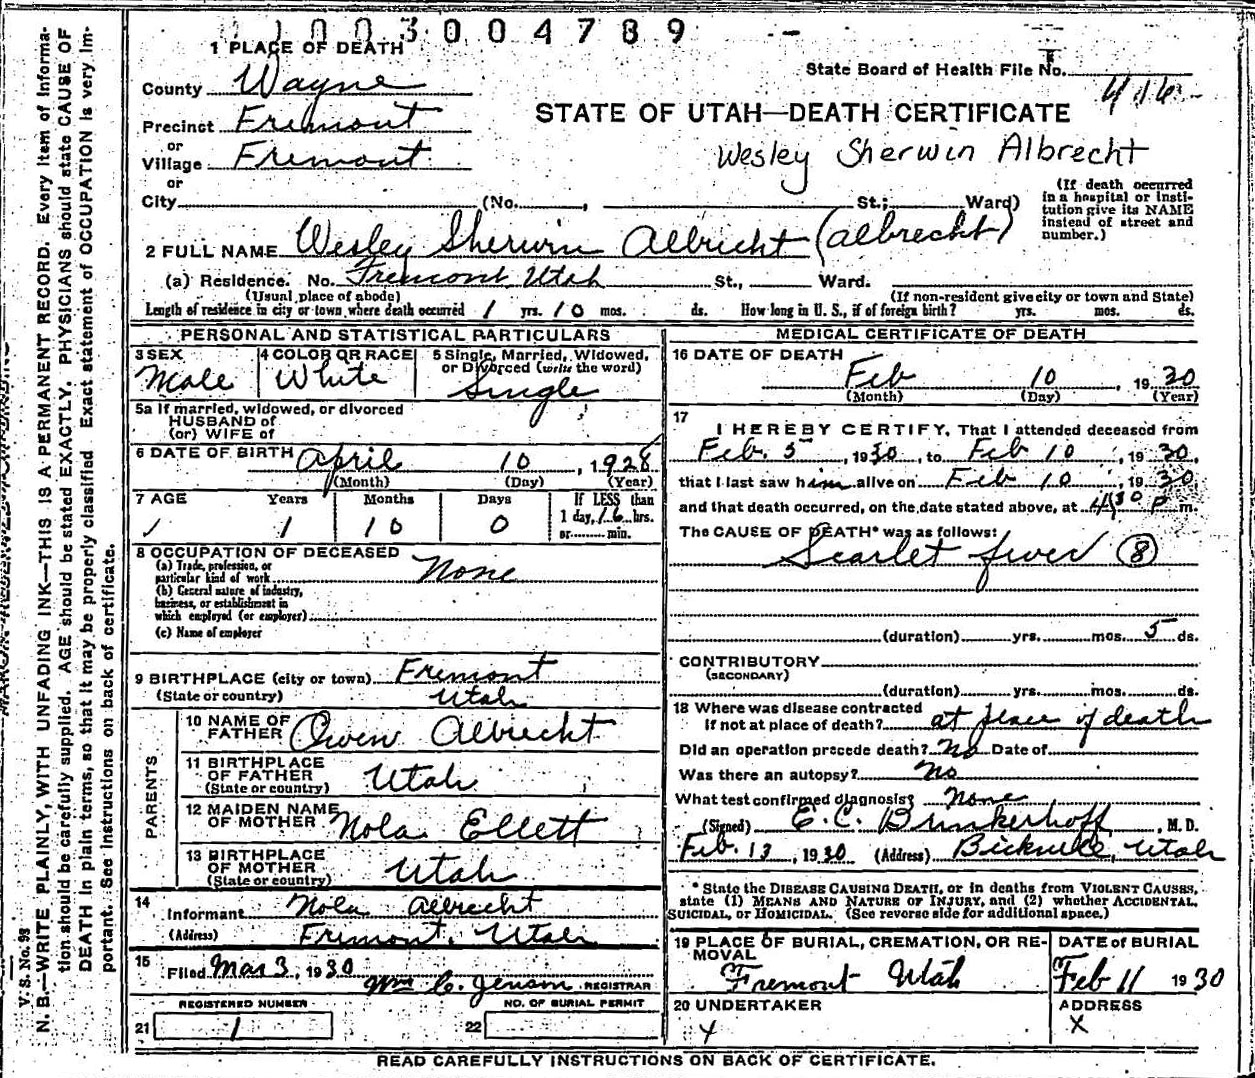 1003004789
1 PLACE OF DEATH
State Board of Health File No. 416
County Wayne
STATE OF UTAH—DEATH CERTIFICATE
Precinct Fremont
or
Village Fremont
Wesley Sherwin Albrecht
or
City (No. , St.; Ward)
(If death occurred in a hospital or institution give its NAME instead of street and number.)
2 FULL NAME Wesley Sherwin Albricht (Albrecht)
(a) Residence. No. Fremont, Utah St., Ward.
(Usual place of abode) (If non-resident give city or town and State)
Length of residence in city or town where death occurred 1 yrs. 10 mos. ds. How long in U. S., if of foreign birth? yrs. mos. ds.
PERSONAL AND STATISTICAL PARTICULARS
3 SEX Male
4 COLOR OR RACE White
5 Single, Married, Widowed, or Divorced (write the word) Single
5a If married, widowed, or divorced
HUSBAND of
(or) WIFE of
6 DATE OF BIRTH April 10, 1928
(Month) (Day) (Year)
7 AGE Years Months Days If LESS than
1 1 10 0 1 day, 16 hrs.
or min.
8 OCCUPATION OF DECEASED
(a) Trade, profession, or
particular kind of work None
(b) General nature of industry,
business, or establishment in
which employed (or employer)
(c) Name of employer
9 BIRTHPLACE (city or town) Fremont
(State or country) Utah
PARENTS
10 NAME OF FATHER Owen Albrecht
11 BIRTHPLACE OF FATHER (State or country) Utah
12 MAIDEN NAME OF MOTHER Nola Ellett
13 BIRTHPLACE OF MOTHER (State or country) Utah
14 Informant Nola Albrecht
(Address) Fremont, Utah
15 Filed Mar 3, 1930 Wm C. Jenson REGISTRAR
REGISTERED NUMBER NO. OF BURIAL PERMIT
21 1 22
MEDICAL CERTIFICATE OF DEATH
16 DATE OF DEATH
Feb 10, 1930
(Month) (Day) (Year)
17
I HEREBY CERTIFY, That I attended deceased from
Feb. 5, 1930, to Feb 10, 1930,
that I last saw him alive on Feb 10, 1930
and that death occurred, on the date stated above, at 4:30 P m.
The CAUSE OF DEATH* was as follows:
Scarlet fever (8)
(duration) yrs. mos. 5 ds.
CONTRIBUTORY
(SECONDARY)
(duration) yrs. mos. ds.
18 Where was disease contracted
if not at place of death? at place of death
Did an operation precede death? No Date of
Was there an autopsy? No
What test confirmed diagnosis? None
(Signed) E. C. Brinkerhoff, M. D.
Feb. 13, 1930 (Address) Bicknell, Utah
* State the DISEASE CAUSING DEATH, or in deaths from VIOLENT CAUSES,
state (1) MEANS AND NATURE OF INJURY, and (2) whether ACCIDENTAL,
SUICIDAL, or HOMICIDAL. (See reverse side for additional space.)
19 PLACE OF BURIAL, CREMATION, OR RE-
MOVAL
Fremont Utah
DATE of BURIAL
Feb 11 1930
20 UNDERTAKER
X
ADDRESS
X
READ CAREFULLY INSTRUCTIONS ON BACK OF CERTIFICATE.
V. S. No. 93
N. B.—WRITE PLAINLY, WITH UNFADING INK—THIS IS A PERMANENT RECORD. Every item of informa-
tion should be carefully supplied. AGE should be stated EXACTLY. PHYSICIANS should state CAUSE OF
DEATH in plain terms, so that it may be properly classified. Exact statement of OCCUPATION is very im-
portant. See instructions on back of certificate.